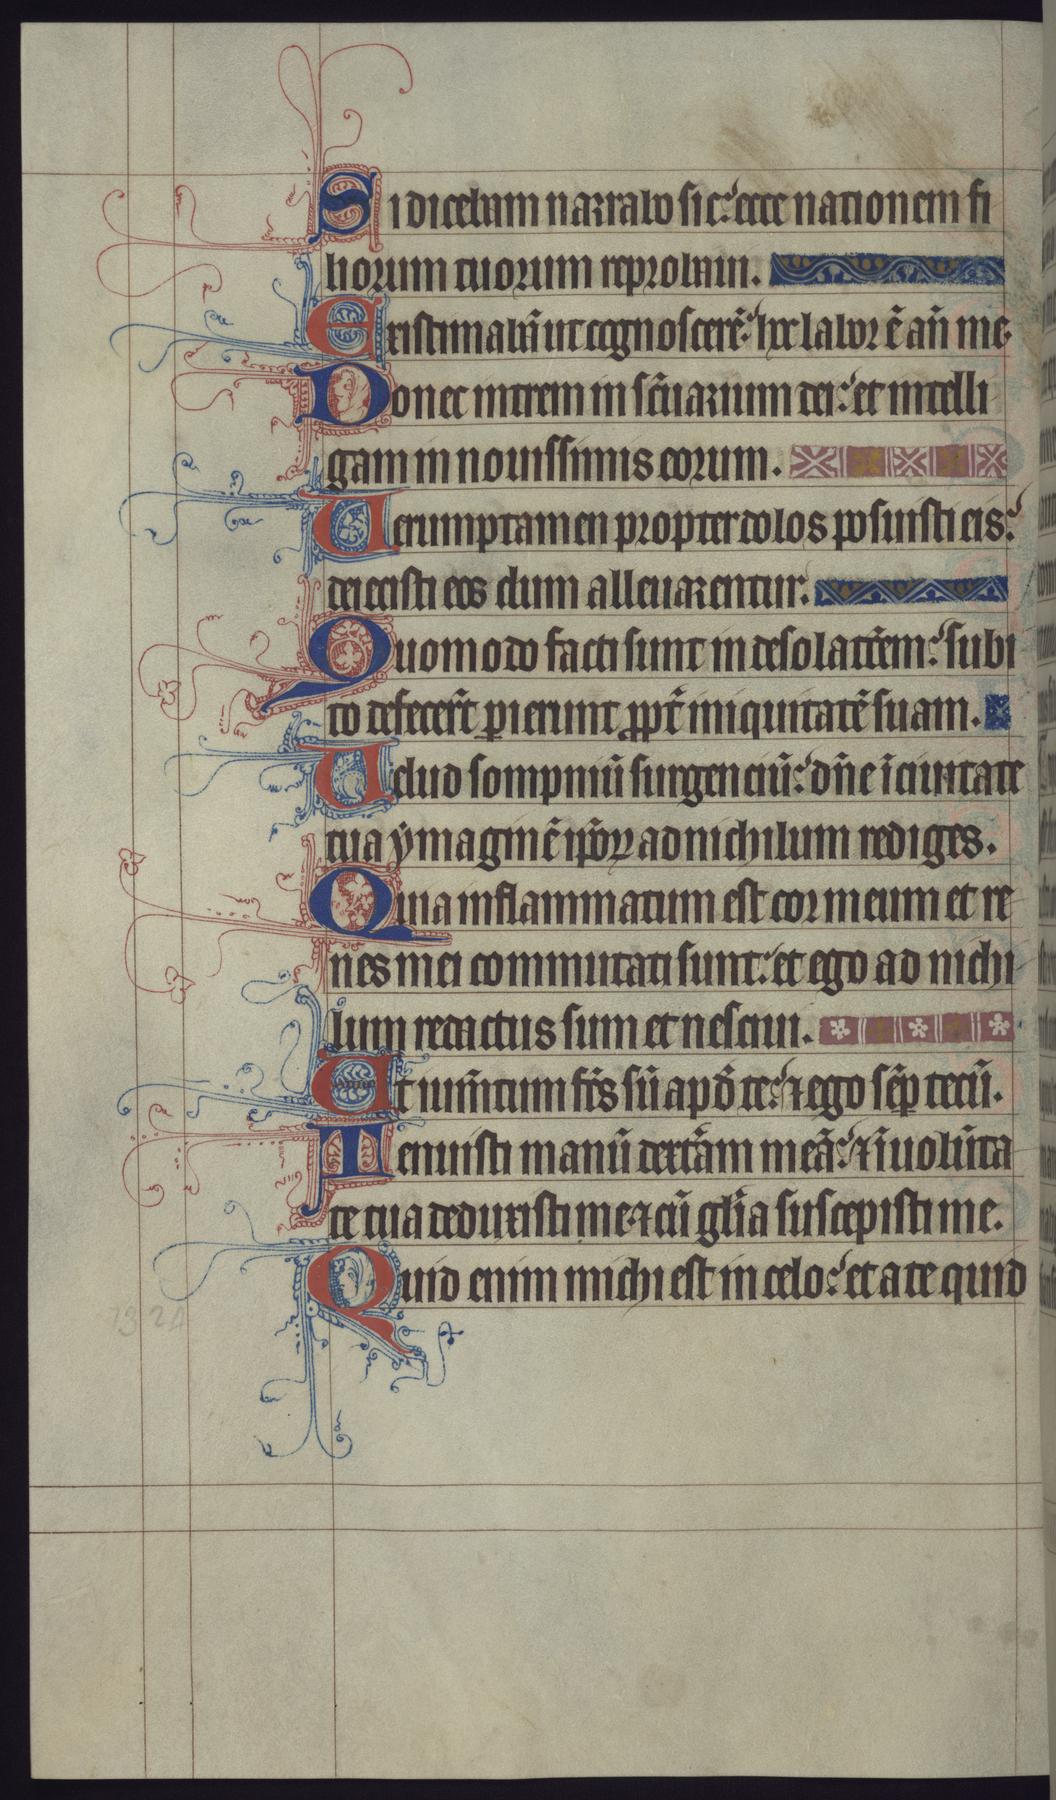 Si dicebam narrabo sic: ecce nationem fi
liorum tuorum reprobaui.
Existimabã ut cognoscerẽ: hoc labor ẽ añ me
Donec intrem in sc̃uarium dei: et intelli
gam in nouissimis eorum.
Uerumptamen propter dolos posuisti eis:
deiecisti eos dum alleuarentur.
Quomodo facti sunt in desolatõem: subi
to defecer̃t ꝑierunt ꝓpt̃ iniquitatẽ suam.
Uelud sompniũ surgenciũ: dñe ĩ ciuitate
tua ẏmaginẽ ip̃oꝝ ad nichilum rediges.
Quia inflammatum est cor meum et re
nes mei commutati sunt: et ego ad nichi
lum redactus sum et nesciui.
Ut ium̃tum fc̃s sũ apd̃ te: ⁊ ego semꝑ tecũ.
Tenuisti manũ dext̃am meã: ⁊ ĩ uolũta
te tua deduxisti me ⁊ cũ glĩa suscepisti me.
Quid enim michi est in celo: et a te quid